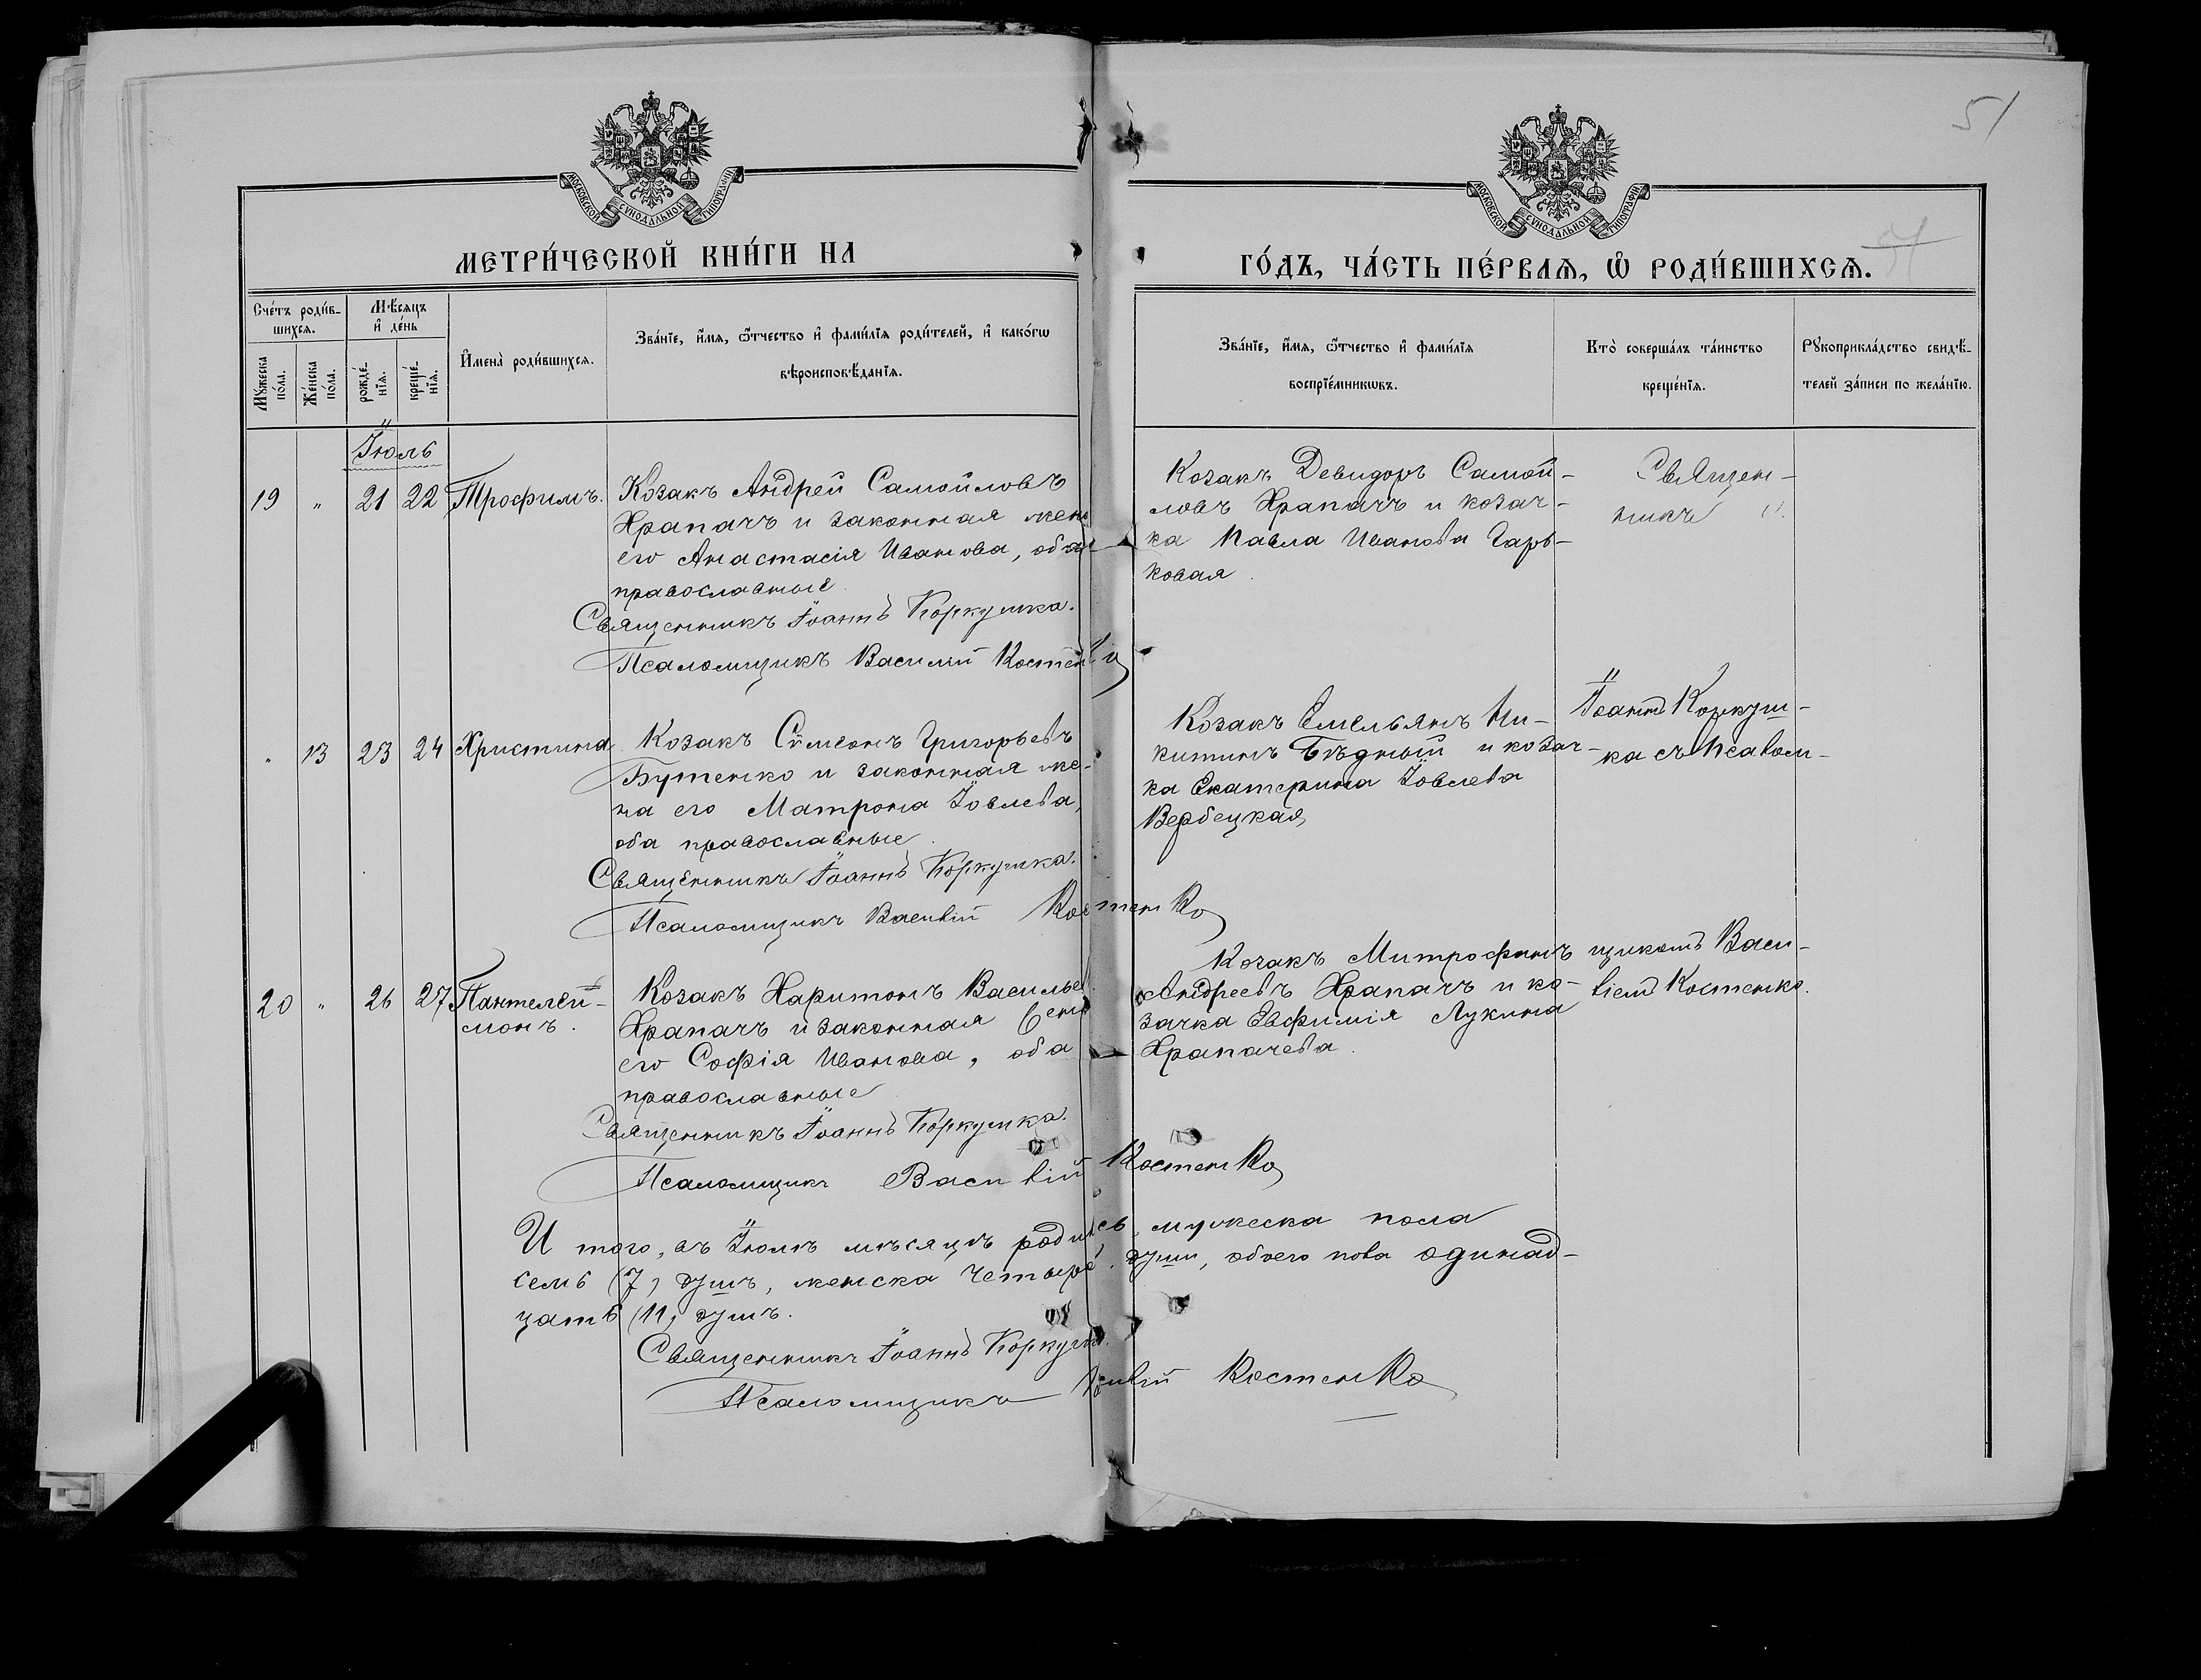 51
МОСКОВСКОЙ СѴНОДАЛЬНОЙ ТИПОГРАФІИ
МОСКОВСКОЙ СѴНОДАЛЬНОЙ ТИПОГРАФІИ
МЕТРИ́ЧЕСКОЙ КНИ́ГИ НА
ГО́ДЪ, ЧА́СТЬ ПЕ́РВАѦ, Ѡ҆ РОДИ́ВШИХСѦ.
Сче́тъ роди́в-
шихсѧ.
Мꙋ́жеска
по́ла.
Же́нска
по́ла.
Мѣ́сѧцъ
и҆ де́нь
рожде́-
нїѧ.
креще́-
нїѧ.
И҆мена̀ роди́вшихсѧ.
Зва́нїе, и҆́мѧ, ѻ҆́тчество и҆ фами́лїѧ роди́телей, и҆ како́гѡ
вѣроисповѣ́данїѧ.
Зва́нїе, и҆́мѧ, ѻ҆́тчество и҆ фами́лїѧ
воспрїе́мникѡвъ.
Кто̀ соверша́лъ та́инство
креще́нїѧ.
Рꙋкоприкла́дство свидѣ́-
телей за́писи по жела́нїю.
Іюль
19 " 21 22 Трофимъ.
Козакъ Андрей Самойловъ
Храпачъ и законная жена
его Анастасія Иванова, оба
православные
Священникъ Іоаннъ Коркушка.
Псаломщикъ Василій
Козакъ Самой-
ловъ Храпачъ и козач-
ка Павла Иванова Гарь-
ковая.
Священ-
никъ
" 13 23 24 Христина
Козакъ Сѵмеонъ Григорьевъ
Бутенко и законная же-
на его Матрона Іовлева,
оба православные.
Священникъ Іоаннъ Коркушка.
Псаломщикъ Василій Костенко
Козакъ Емельянъ Ни-
китинъ Бѣдный и козач-
ка Екатерина Іовлева
Вербецкая
Іоаннъ Коркуш-
ка съ псалом-
20 " 26 27 Пантелей-
монъ.
Козакъ Харитонъ Васильев
Храпачъ и законная жена
его Софія Иванова, оба
православные
Священникъ Іоаннъ Коркушка.
Псаломщикъ Василій Костенко
Козакъ Митрофанъ
Андреевъ Храпачъ и ко-
зачка Евфимія Лукина
Храпачева.
щикомъ Васи-
ліемъ Костенко.
И того, въ Іюлѣ мѣсяцѣ родилось мужеска пола
семь (7) душъ, женска четыре души, обоего пола одинад-
цать (11) душъ.
Священникъ Іоаннъ Коркушка.
Псаломщикъ Василій Костенко